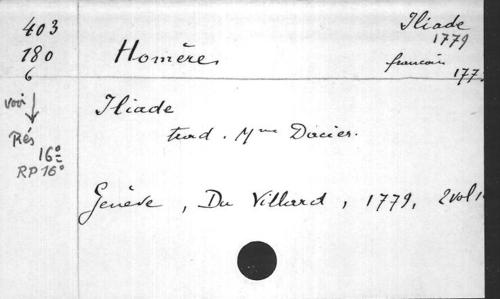 403
180
6
voir
Rés
16º
RP 16º
Homère
Iliade
1779
français
177
Iliade
trad. Mme Dacier.
Genève, Du Villard, 1779, 2 vol